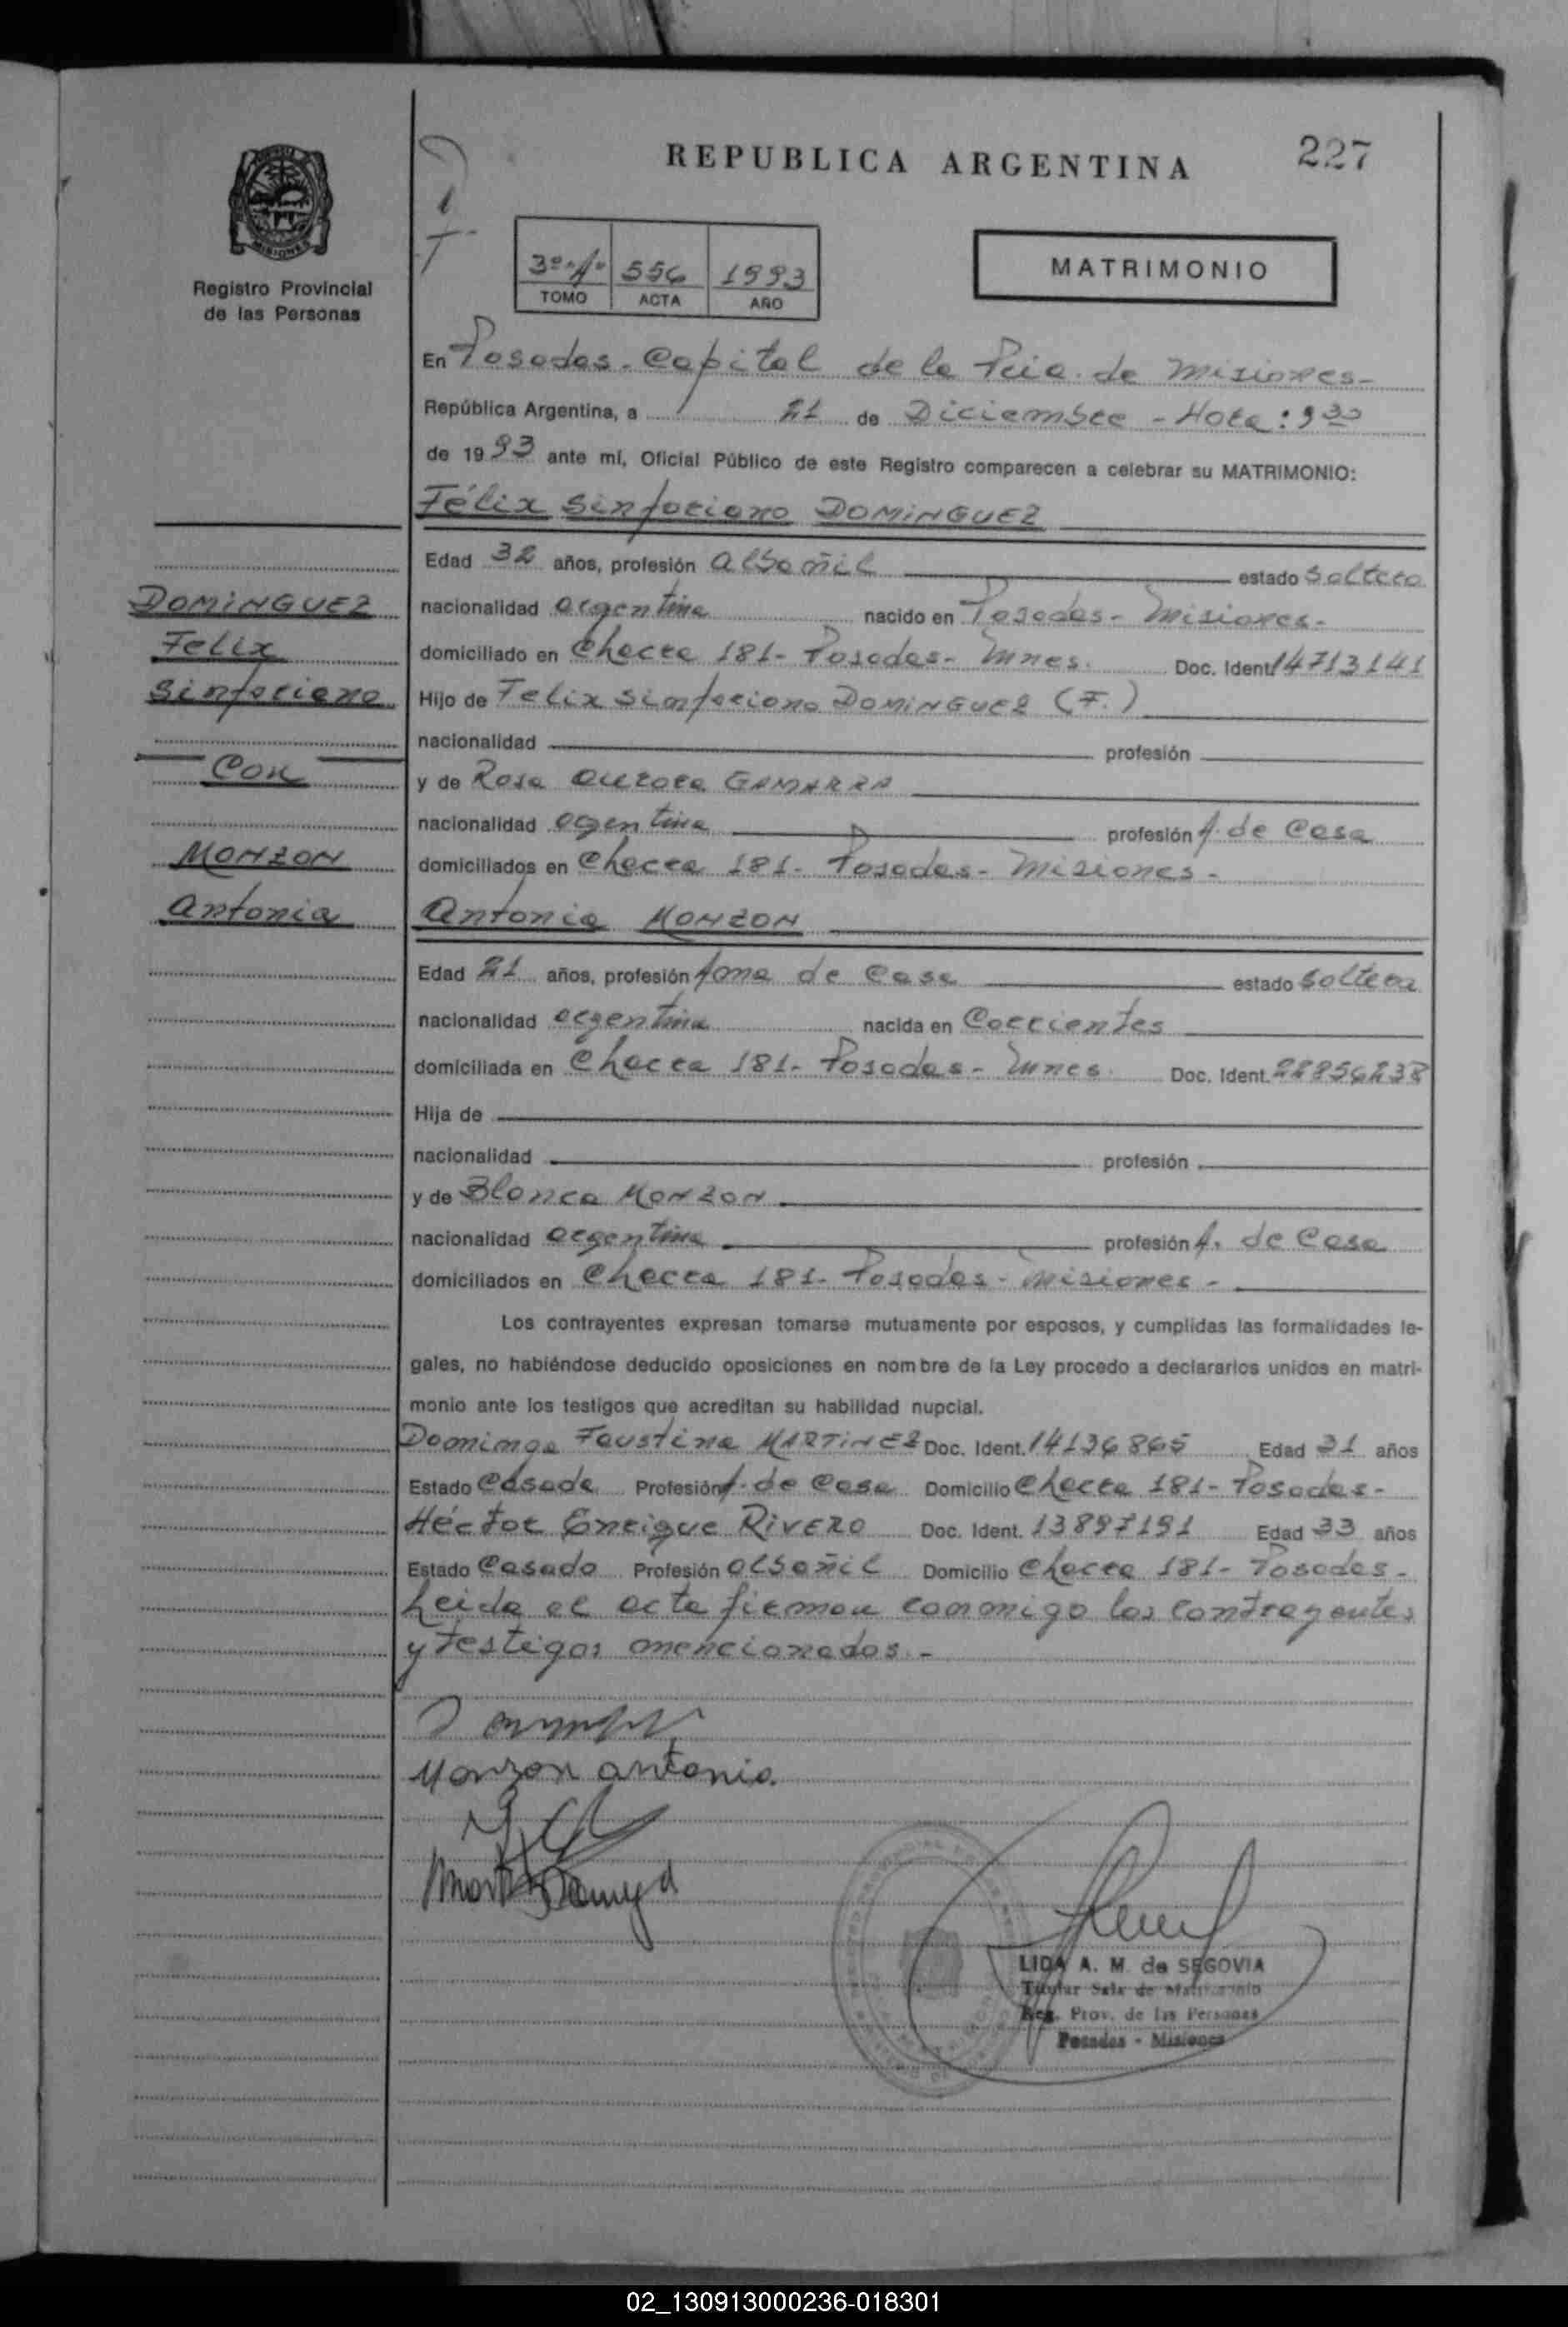 REPUBLICA ARGENTINA
227
Registro Provincial
de las Personas
3º "A" 556 1993
TOMO ACTA AÑO
MATRIMONIO
En Posadas - Capital de la Pcia. de Misiones -
República Argentina, a 21 de Diciembre - Hora: 9 30
de 1993 ante mí, Oficial Público de este Registro comparecen a celebrar su MATRIMONIO:
Félix Sinforiano DOMINGUEZ
Edad 32 años, profesión albañil estado Soltero
nacionalidad argentina nacido en Posadas - Misiones -
domiciliado en Chacra 181 - Posadas - Mnes. Doc. Ident. 14713141
Hijo de Felix Sinforiano DOMINGUEZ (F.)
nacionalidad profesión
y de Rosa Aurora GAMARRA
nacionalidad argentina profesión A. de Casa
domiciliados en Chacra 181 - Posadas - Misiones -
Antonia MONZON
Edad 21 años, profesión Ama de Casa estado Soltera
nacionalidad argentina nacida en Corrientes
domiciliada en Chacra 181 - Posadas - Mnes. Doc. Ident. 22856238
Hija de
nacionalidad profesión
y de Blanca MONZON
nacionalidad argentina profesión A. de Casa
domiciliados en Chacra 181 - Posadas - Misiones -
Los contrayentes expresan tomarse mutuamente por esposos, y cumplidas las formalidades le-
gales, no habiéndose deducido oposiciones en nombre de la Ley procedo a declararlos unidos en matri-
monio ante los testigos que acreditan su habilidad nupcial.
Dominga Faustina MARTINEZ Doc. Ident. 14136865 Edad 31 años
Estado Casada Profesión A. de Casa Domicilio Chacra 181 - Posadas -
Héctor Enrique RIVERO Doc. Ident. 13897191 Edad 33 años
Estado Casado Profesión albañil Domicilio Chacra 181 - Posadas -
Leida el acta firman conmigo los contrayentes
y testigos mencionados -
Monzon antonia
LIDA A. M. de SEGOVIA
Titular Sala de Matrimonio
Reg. Prov. de las Personas
Posadas - Misiones
DOMINGUEZ
Felix
Sinforiano
Con
MONZON
Antonia
02_130913000236-018301